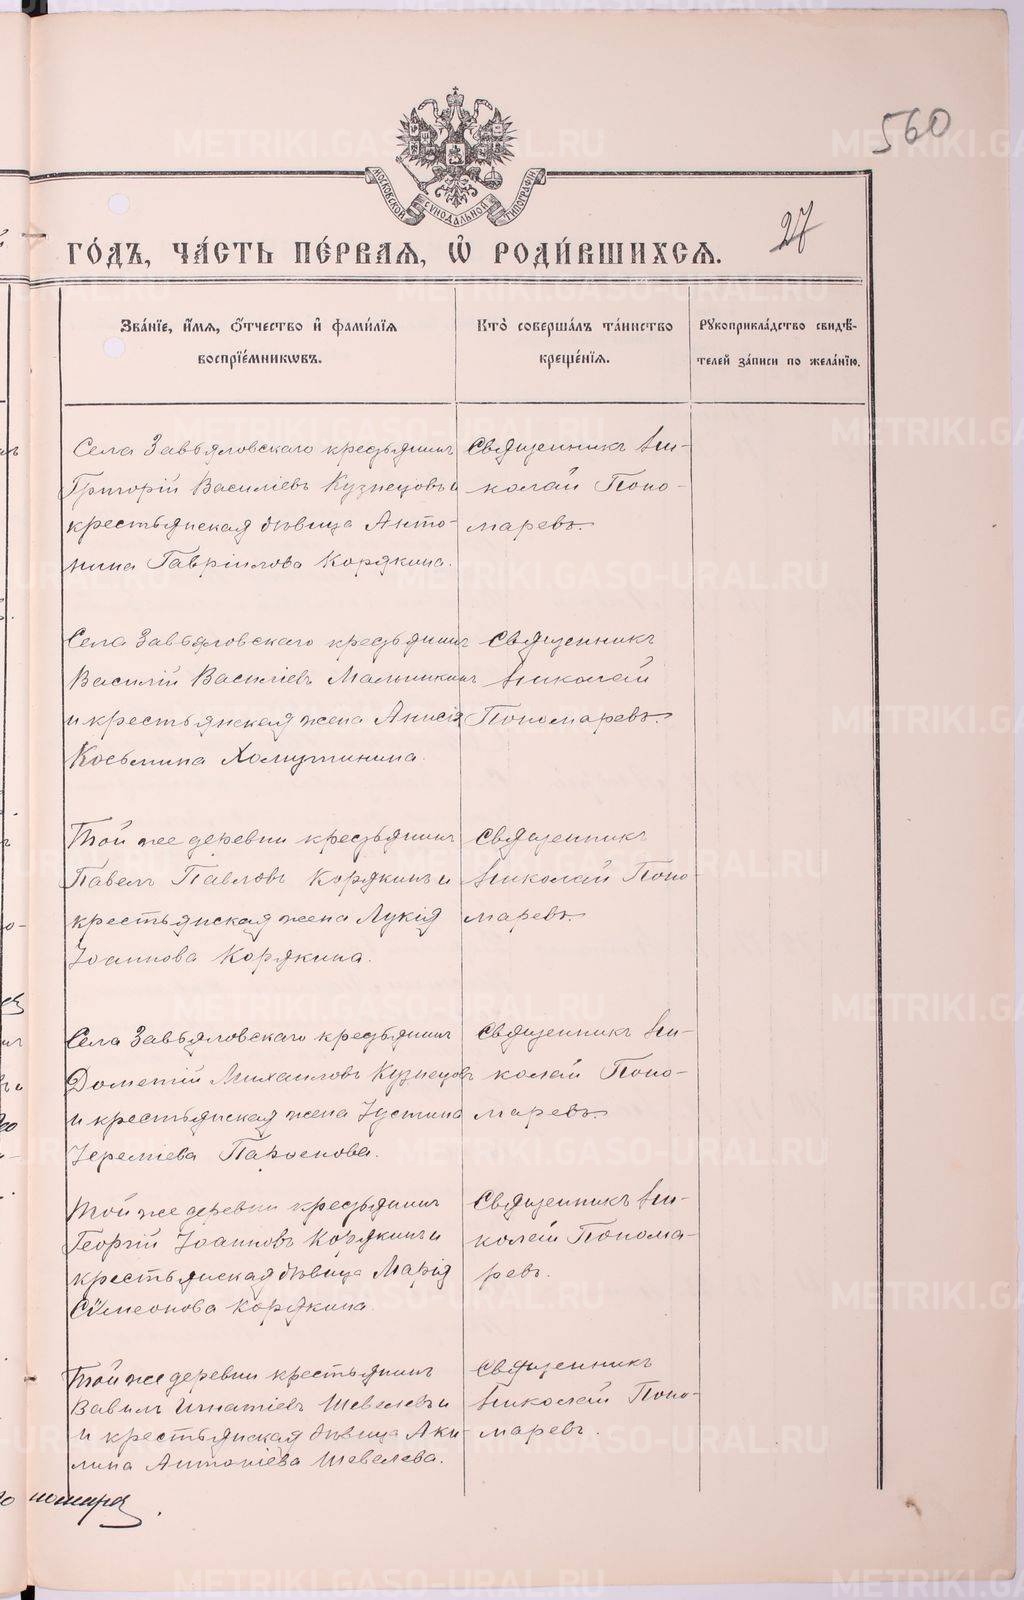 560
27
МОСКОВСКОЙ СѴНОДАЛЬНОЙ ТИПОГРАФІИ
ГО́ДЪ, ЧА́СТЬ ПЕ́РВАѦ, Ѡ҆ РОДИ́ВШИХСѦ.
Зва́нїе, и҆́мѧ, ѻ҆́тчество и҆ фами́лїѧ
воспрїе́мникѡвъ.
Кто̀ соверша́лъ та́инство
креще́нїѧ.
Рꙋкоприкла́дство свидѣ́-
телей за́писи по жела́нїю.
Села Завьяловскаго крестьянинъ
Григорій Василіевъ Кузнецовъ и
крестьянская дѣвица Анто-
нина Гавріилова Корякина.
Священникъ Ни-
колай Поно-
маревъ.
Села Завьяловскаго крестьянинъ
Василій Василіевъ Мальникинъ
и крестьянская жена Анисія
Косьмина Хомутинина.
Священникъ
Николай
Пономаревъ.
Той же деревни крестьянинъ
Павелъ Павловъ Корякинъ и
крестьянская жена Лукія
Іоаннова Корякина.
Священникъ
Николай Поно-
маревъ.
Села Завьяловскаго крестьянинъ
Дометій Михаиловъ Кузнецовъ
и крестьянская жена Іустина
Іереміева
Священникъ Ни-
колай Поно-
маревъ.
Той же деревни крестьянинъ
Георгій Іоанновъ Корякинъ и
крестьянская дѣвица Марія
Сѵмеонова Корякина.
Священникъ Ни-
колай Понома-
ревъ.
Той же деревни крестьянинъ
Вавилъ Игнатіевъ Шевелевъ и
и крестьянская дѣвица Аки-
лина Антоніева Шевелева.
Священникъ
Николай Поно-
маревъ.
METRIKI.GASO-URAL.RU